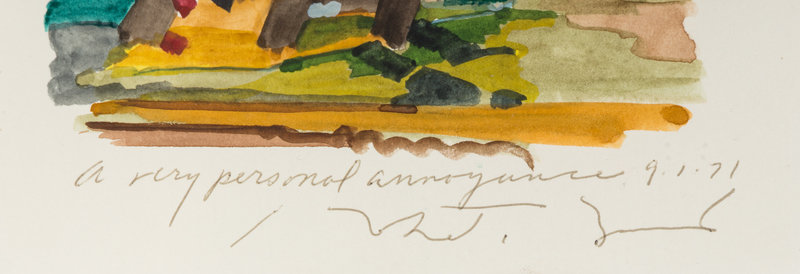 A very personal annoyance 9.1.71